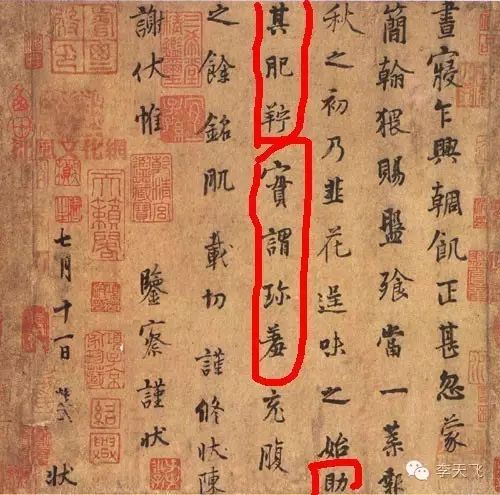 晝寢乍興輖飢正甚忽蒙
簡翰猥賜盤飧當一葉報
秋之初乃韭花逞味之始助
其肥羜實謂珎羞充腹
之餘銘肌載切謹脩狀陳
謝伏惟
鑒察謹狀
七月十一日 狀
天籟閣
文化網
李天飞